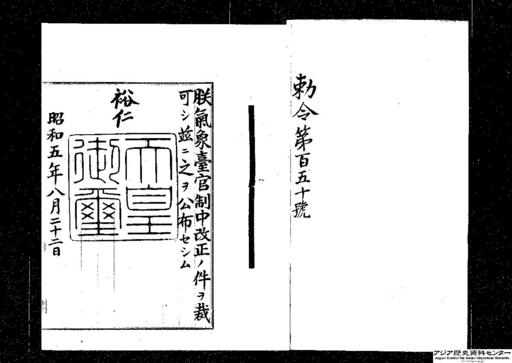 勅令第百五十號
朕氣象臺官制中改正ノ件ヲ裁
可シ茲ニ之ヲ公布セシム
裕仁
天皇
御璽
昭和五年八月二十二日
アジア歴史資料センター
Japan Center for Asian Historical Records